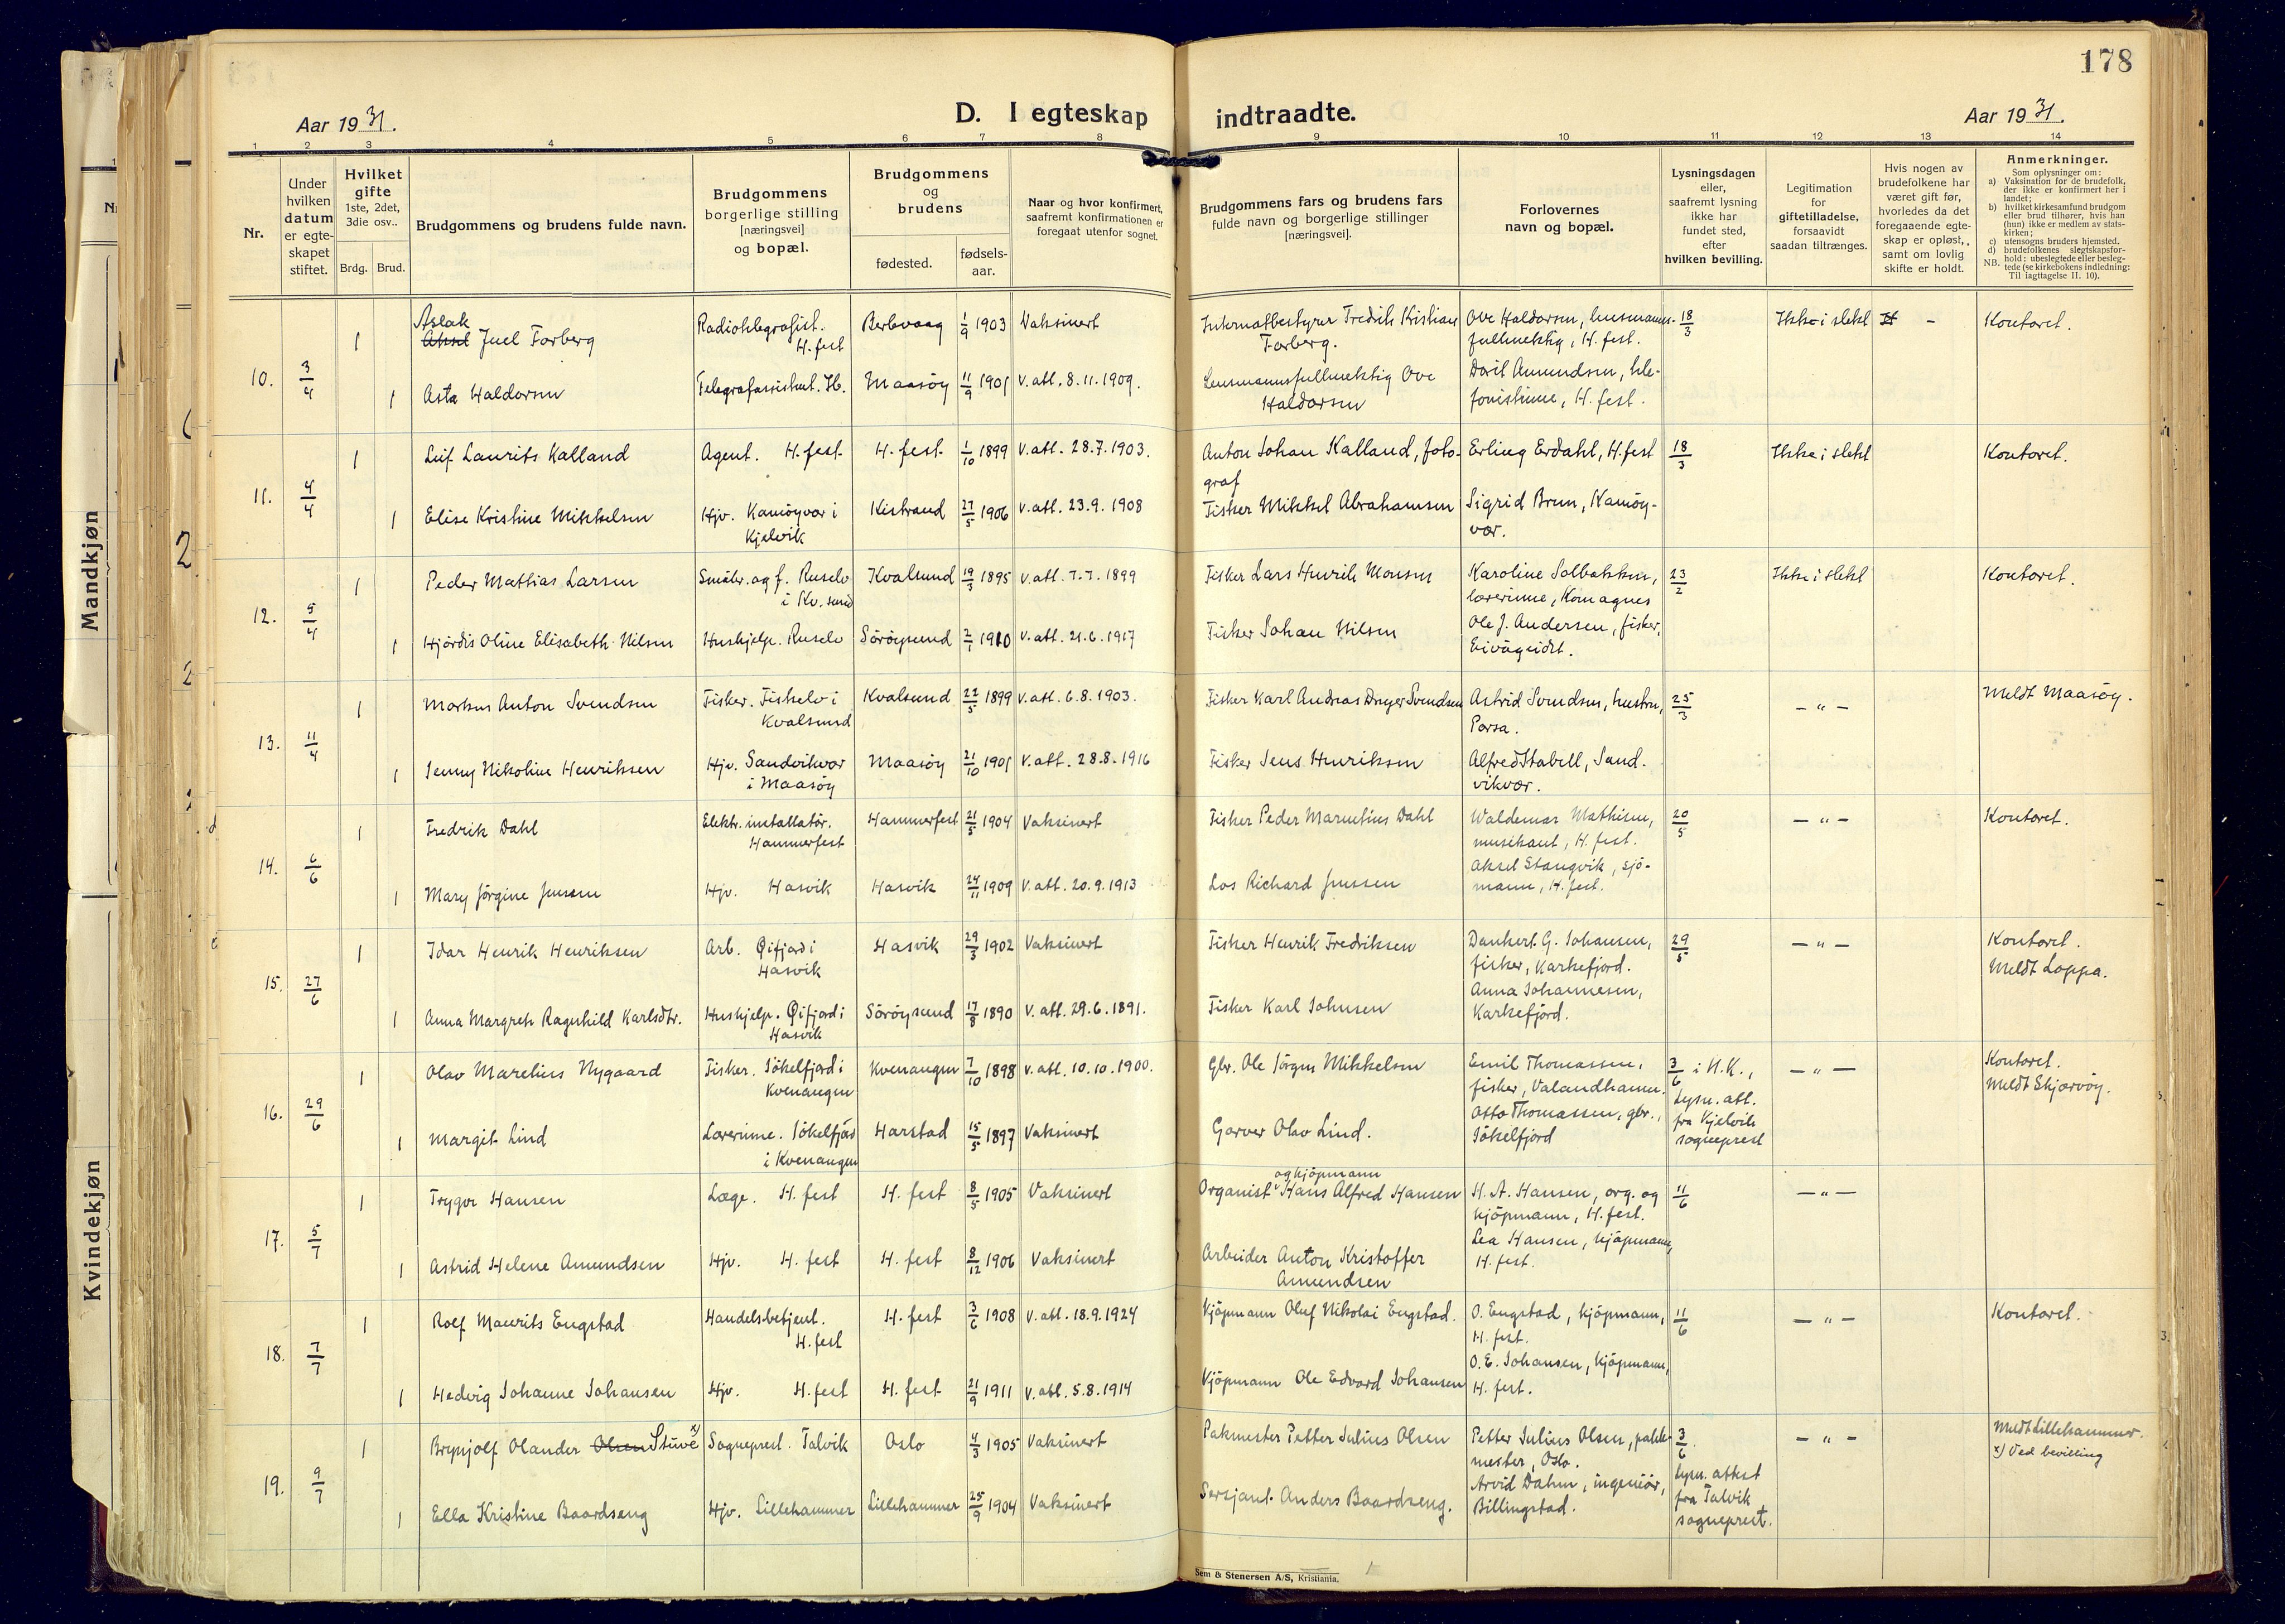 178
Aar 1931.
D. I egteskap indtraadte.
Aar 1931.
1 2 3 4 5 6 7 8 9 10 11 12 13 14
Nr.
Under hvilken datum er egteskapet stiftet.
Hvilket gifte 1ste, 2det, 3die osv..
Brdg. Brud.
Brudgommens og brudens fulde navn.
Brudgommens borgerlige stilling [næringsvei] og bopæl.
Brudgommens og brudens
fødested.
fødselsaar.
Naar og hvor konfirmert, saafremt konfirmationen er foregaat utenfor sognet.
Brudgommens fars og brudens fars fulde navn og borgerlige stillinger [næringsvei].
Forlovernes navn og bopæl.
Lysningsdagen eller, saafremt lysning ikke har fundet sted, efter hvilken bevilling.
Legitimation for giftetilladelse, forsaavidt saadan tiltrænges.
Hvis nogen av brudefolkene har været gift før, hvorledes da det foregaaende egteskap er opløst, samt om lovlig skifte er holdt.
Anmerkninger.
Som oplysninger om:
a) Vaksination for de brudefolk, der ikke er konfirmert her i landet;
b) hvilket kirkesamfund brudgom eller brud tilhører, hvis han (hun) ikke er medlem av statskirken;
c) utensogns bruders hjemsted.
d) brudefolkenes slegtskapsforhold: ubeslegtede eller beslegtede (se kirkebokens indledning: Til iagttagelse II. 10).
NB.
10. 3/4
1 Aslak Aksel Juel Forberg Radiotelegrafist. H.fest Berlevaag 1/9 1903 Vaksinert Internatbestyrer Fredrik Kristian Forberg. Ove Haldorsen, lensmannsfullmektig, H.fest. 18/3 Ikke i slekt - Kontoret.
1 Asta Haldorsen Telegrafassistent. H. Maasöy 11/9 1901 V.att. 8.11.1909. Lensmannsfullmektig Ove Haldorsen Dorit Amundsen, telefonistinne, H.fest.
11. 4/4
1 Leif Laurits Kalland Agent. H.fest H.fest 1/10 1899 V.att. 28.7.1903. Anton Johan Kalland, fotograf Erling Erdahl, H.fest 18/3 Ikke i slekt Kontoret.
1 Elise Kristine Mikkelsen Hjv. Kamöyvær i Kjelvik Kistrand 27/5 1906 V.att. 23.9.1908 Fisker Mikkel Abrahamsen Sigrid Brun, Kamöyvær.
12. 5/4
1 Peder Mathias Larsen Småbr. og f. Ruselv i Kv.sund Kvalsund 19/3 1895 V.att. 7.7.1899 Fisker Lars Henrik Monsen Karoline Solbakken, lærerinne, Komagnes 23/2 Ikke i slekt Kontoret.
1 Hjördis Oline Elisabeth Nilsen Hushjelp. Ruselv Söröysund 2/1 1910 V.att. 21.6.1917 Fisker Johan Nilsen Ole J. Andersen, fisker, Eivågeidet.
13. 11/4
1 Markus Anton Svendsen Fisker. Fiskelv i Kvalsund Kvalsund 22/5 1899 V.att. 6.8.1903. Fisker Karl Andreas Dreyer Svendsen Astrid Svendsen, hustru, Porsa. 25/3 - " - Meldt Maasöy.
1 Jenny Nikoline Henriksen Hjv. Sandvikvær i Maasöy Maasöy 21/10 1901 V.att. 28.8.1916 Fisker Jens Henriksen Alfred Stabell, Sandvikvær.
14. 6/6
1 Fredrik Dahl Elektr. installatör. Hammerfest Hammerfest 21/5 1904 Vaksinert Fisker Peder Marnetius Dahl Waldemar Mathisen, musikant, H.fest. 20/5 - " - Kontoret.
1 Mary Jörgine Jensen Hjv. Hasvik Hasvik 24/11 1909 V.att. 20.9.1913 Los Richard Jenssen Aksel Stangvik, sjömann, H.fest.
15. 27/6
1 Idar Henrik Henriksen Arb. Öifjord i Hasvik Hasvik 29/3 1902 Vaksinert Fisker Henrik Fredriksen Dankert G. Johansen, fisker, Karkefjord. 29/5 - " - Kontoret. Meldt Loppa.
1 Anna Margreth Ragnhild Karlsdtr. Hushjelp. Öifjord i Hasvik Söröysund 17/8 1890 V.att. 29.6.1891. Fisker Karl Johnsen Anna Johannesen, Karkefjord.
16. 29/6
1 Olav Marelius Nygaard Fisker. Jökelfjord i Kvenangen Kvenangen 7/10 1898 V.att. 10.10.1900. Gbr. Ole Jörgen Mikkelsen Emil Thomassen, fisker, Valandhamn. 3/6 i N.K., Lysn.att. fra Kjelvik sogneprest - " - Kontoret. Meldt Skjærvöy.
1 Margit Lind Lærerinne. Jökelfjord i Kvenangen Harstad 15/5 1897 Vaksinert Garver Olav Lind. Otto Thomassen, gbr., Jökelfjord
17. 5/7
1 Trygve Hansen Læge. H.fest H.fest 8/5 1905 Vaksinert Organist og kjöpmann Hans Alfred Hansen H.A. Hansen, org. og kjöpmann, H.fest. 11/6 - " -
1 Astrid Helene Amundsen Hjv. H.fest H.fest 8/12 1906 Vaksinert Arbeider Anton Kristoffer Amundsen Lea Hansen, kjöpmann, H.fest.
18. 7/7
1 Rolf Maurits Engstad Handelsbetjent. H.fest H.fest 3/6 1908 V.att. 18.9.1924 Kjöpmann Oluf Nikolai Engstad. O. Engstad, kjöpmann, H.fest. 11/6 - " - Kontoret.
1 Hedvig Johanne Johansen Hjv. H.fest H.fest 21/9 1911 V.att. 5.8.1914 Kjöpmann Ole Edvard Johansen O.E. Johansen, kjöpmann, H.fest.
19. 9/7
1 Brynjolf Olander Olsen Stuve x) Sogneprest. Talvik Oslo 4/3 1905 Vaksinert Pakmester Petter Julius Olsen Petter Julius Olsen, pakkmester, Oslo. 3/6. Lysn. attest fra Talvik sogneprest. - " - Meldt Lillehammer. x) Ved bevilling
1 Ella Kristine Baardseng Hjv. Lillehammer Lillehammer 25/9 1904 Vaksinert Sersjant Anders Baardseng. Arvid Dahm, ingeniör, Billingstad.
Sem & Stenersen A/S, Kristiania.
Mandkjøn
Kvindekjøn